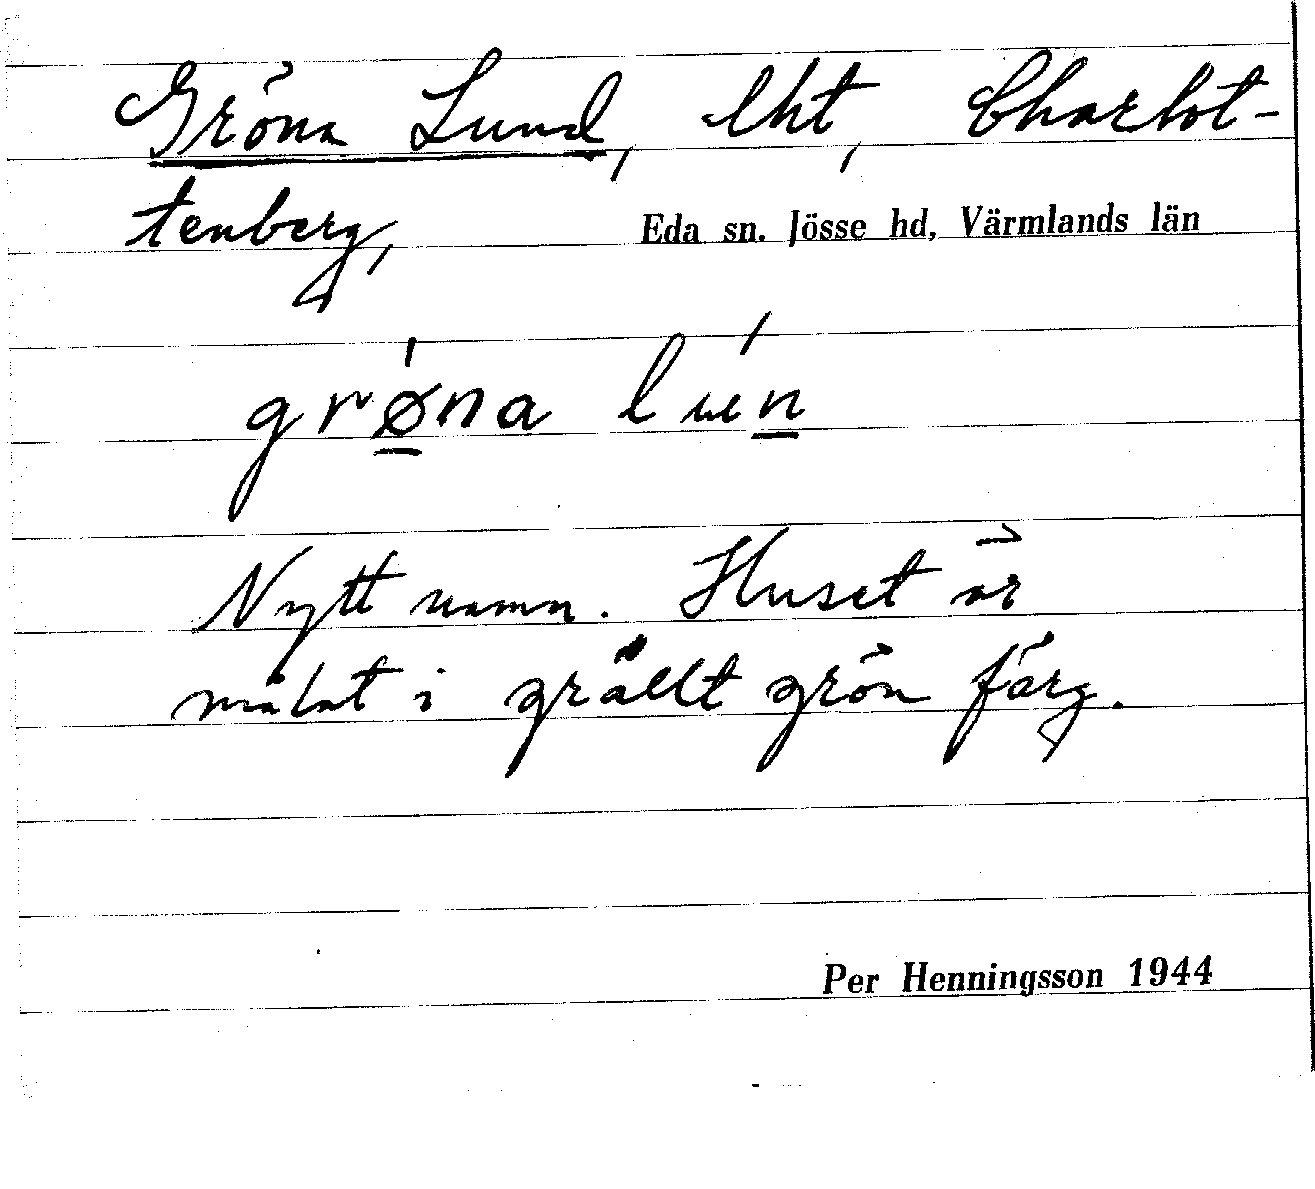 Gröna Lund, lht, Charlot-
tenberg,
Eda sn. Jösse hd, Värmlands län
grǿ̲na lué̲n̲
Nytt namn. Huset är
målat i grällt grön färg.
Per Henningsson 1944